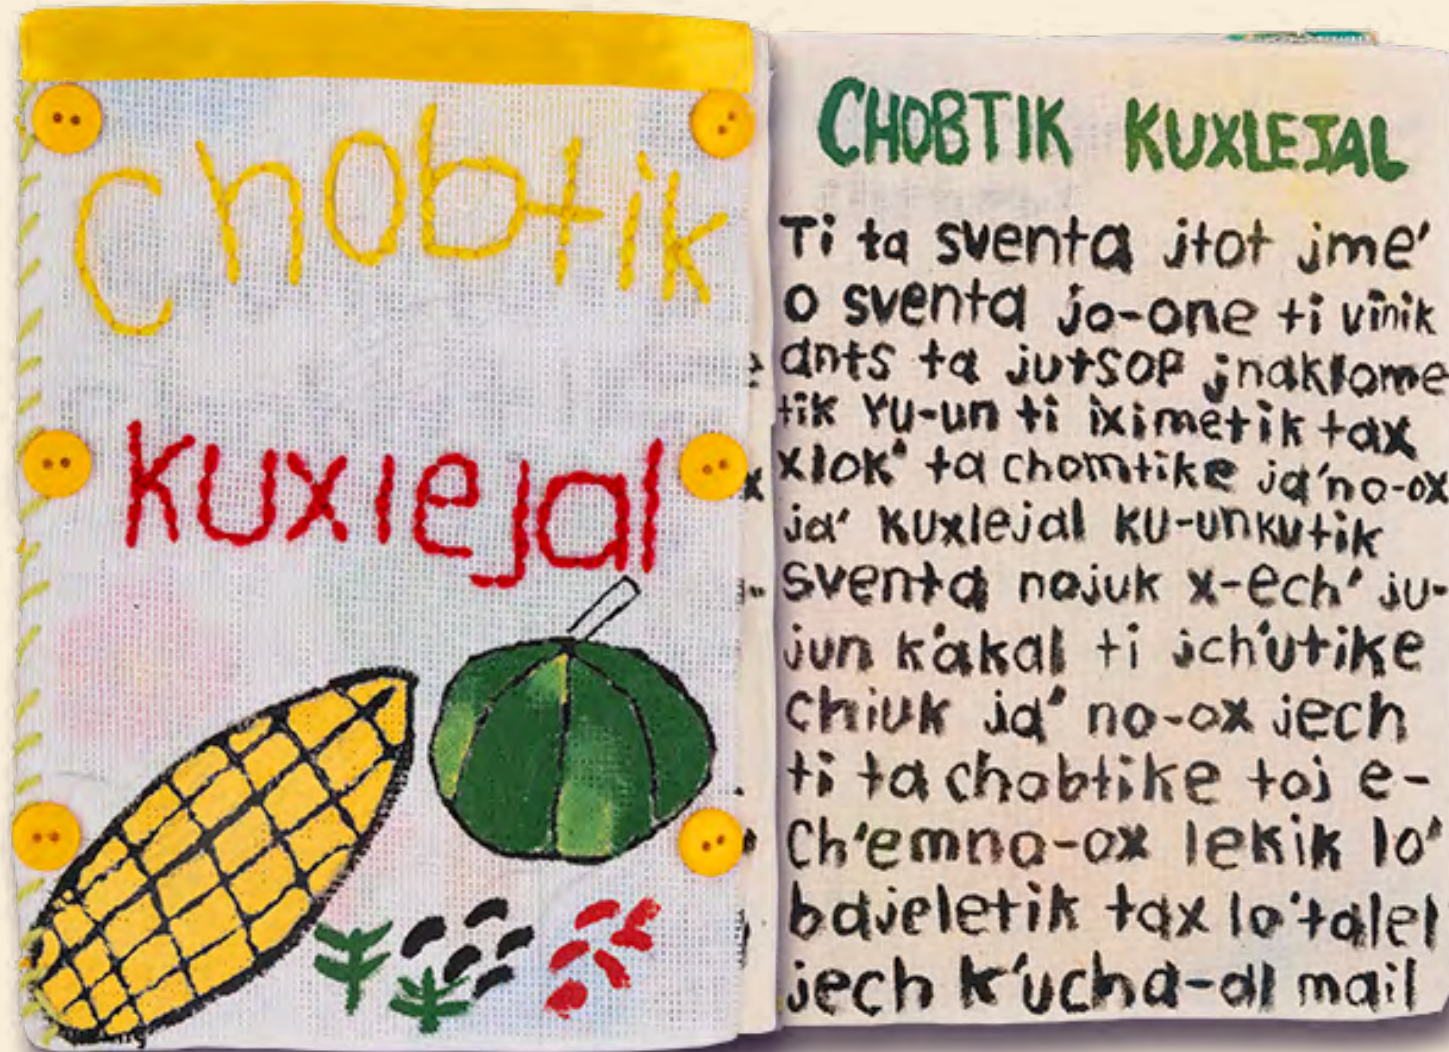 Chobtik
kuxlejal
CHOBTIK KUXLEJAL
Ti ta sventa jtot jme'
o sventa jo-one ti vinik
ants ta jutsop jnaklome
tik yu-un ti iximetik tax
xlok' ta chomtike ja'no-ox
ja' kuxlejal ku-unkutik
sventa nojuk x-ech' ju-
jun k'akal ti jch'utike
chiuk ja' no-ox jech
ti ta chobtike toj e-
ch'emno-ox lekik lo'
bajeletik tax lo'talel
jech k'ucha-al mail